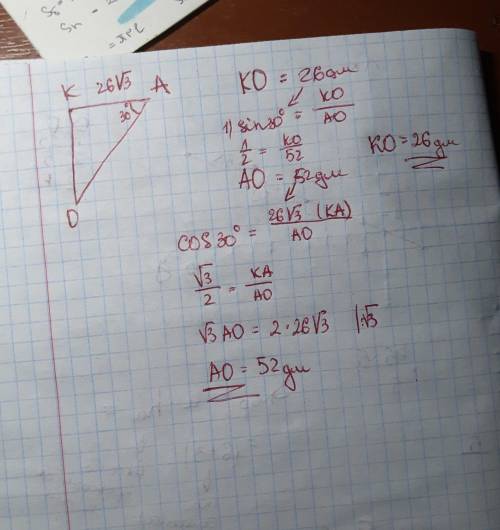 K 26√3 A
30°
O
KO = 26 дм
1) sin30° = KO/AO
1/2 = KO/52
KO = 26 дм
AO = 52 дм
cos 30° = 26√3 (KA)/AO
√3/2 = KA/AO
√3 AO = 2 · 26√3 |:√3
AO = 52 дм